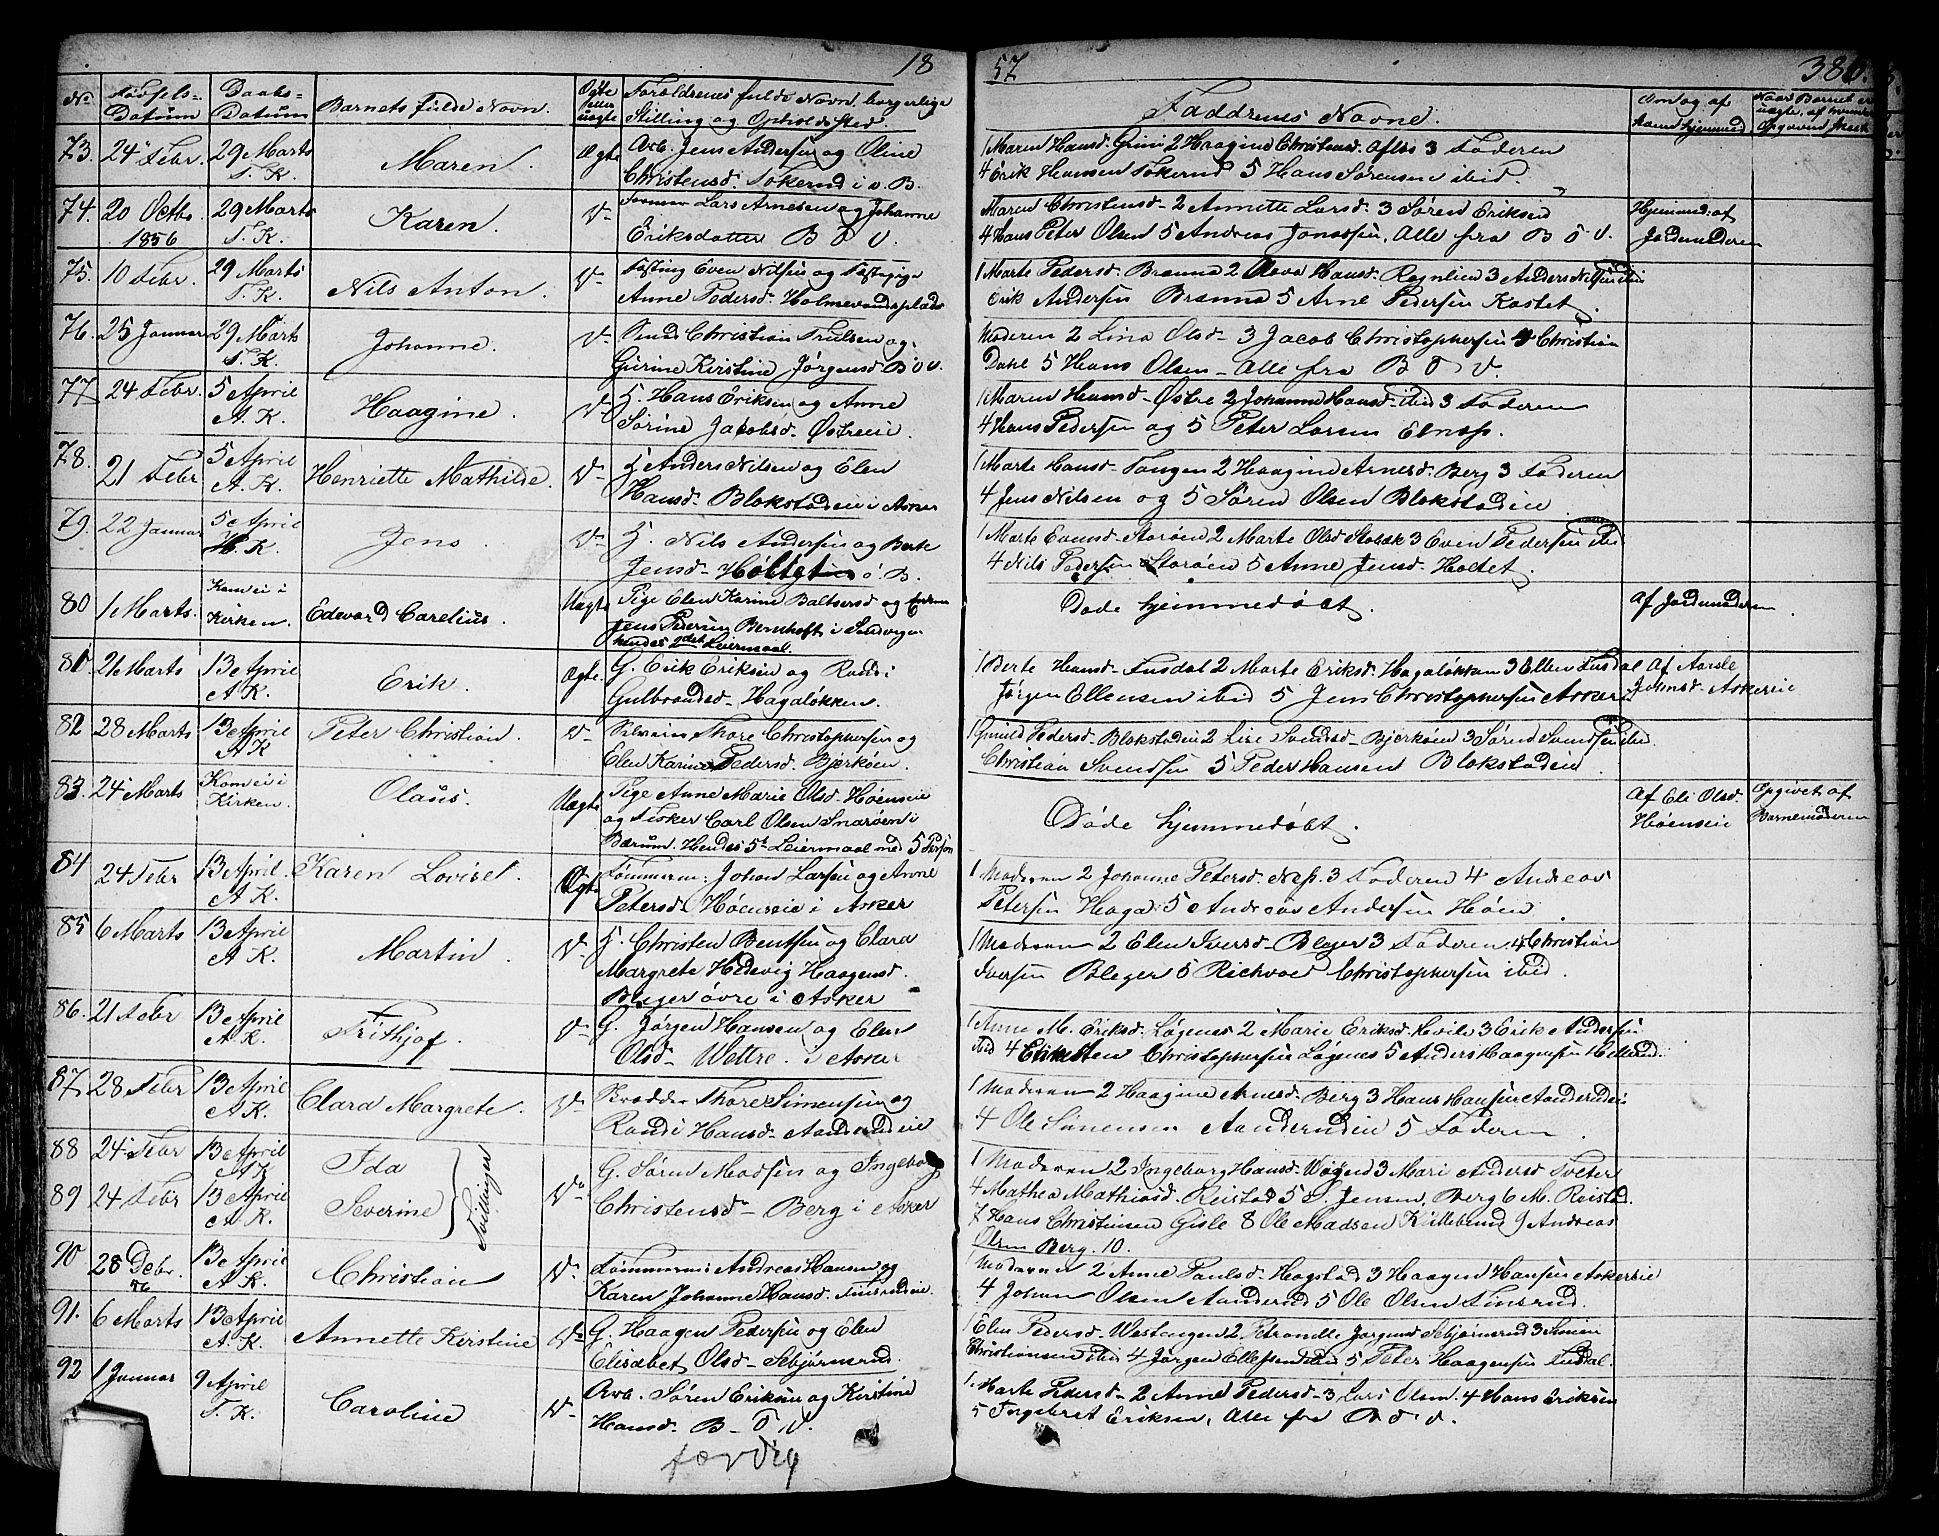 18
No
Fødsels-
Datum
Daabs-
Datum
Barnets fulde Navn.
Ægte
eller
uægte
Forældrenes fulde Navn, borgerlige
Stilling og Opholdssted.
73. 24 Febr. 29 Marts Maren. Ægte Arb. Jens Andersen og Oline
T. K. Christensd. Tokerud i v. B.
74. 20 Octbr. 29 Marts Karen. Do Lars Arnesen og Johanne
1856 T. K. Eriksdatter B ö V.
75. 10 Febr. 29 Marts Nils Anton. Do Even Nilsen og
T. K. Anne Pedersd. Holmevandsplads
76. 25 Januar 29 Marts Johanne. Do Christian Trulsen og
T. K. Gurine Kirstine Jørgensd. B ö V.
77 24 Febr. 5 April Haagine. Do H. Hans Eriksen og Anne
A. K. Sørine Jacobsd. Østreeie.
78. 21 Febr 5 April Henriette Mathilde. Do H Anders Nilsen og Elen
A. K. Hansd. Blokstadeie i Asker
79. 22 Januar 5 April Jens Do H. Nils Andersen og Berte
K. Jensd. ö. B.
80 1 Marts. Kom ei i Edevard Carelius. Uægte Pige Elen Karine Baltsersd og
Kirken. Jens Pedersen Bernhoft i Sandvigen
hendes 2det Leiermaal.
81 21 Marts 13 April Erik. Ægte. G. Erik Eriksen og Randi
A K. Gulbrandsd. Hagaløkken.
82 28 Marts 13 April Peter Christian. Do Thore Christophersen og
A K Elen Karine Pedersd. Bjerkøen.
83. 24 Marts Kom ei i Olaus. Uægte Pige Anne Marie Olsd. Høenseie
Kirken. og Fisker Carl Olsen Snarøen i
Bærum. Hendes 5te Leiermaal med 5 Person
84 24 Febr 13 April. Karen Lovise. Ægte Tømmerm: Johan Larsen og Anne
A K. Petersd. Høenseie i Asker
85 6 Marts 13 April Martin. Do H. Christen Bentsen og Clara
A K. Margrete Hedevig Haagensd.
Bleger övre i Asker
86. 21 Febr 13 April Frithjof. Do G. Jørgen Hansen og Elen
A K. Olsd. Wettre i Asker
87. 28 Febr 13 April Clara Margrete. Do Thore Simensen og
A K. Randi Hansd. Aanderudeie
88 24 Febr 13 April Ida Tvillinger G. Søren Madsen og Ingeborg
A K
89 24 Febr 13 April Severine Do Christensd. Berg i Asker
A. K.
90 28 Debr. 13 April Christian Do Tømmerm: Andreas Hansen og
56 A K. Karen Johanne Hansd. Finsrudeie.
91. 6 Marts 13 April Annette Kirstine Do G. Haagen Pedersen og Elen
A. K. Elisabet Olsd. Sebjørnsrud.
92 1 Januar 9 April Caroline Do Arb. Søren Eriksen og Kirstine
T. K. Hansd. B. ö V.
færdig
57 386.
Faddrenes Navne.
Om og af
hvem hjemmed
Naar Barnet er
uægte, af hvem
Opgaven skeet
1 Maren Hansd. Grini 2 Haagine Christensd. 3 Faderen
4 Erik Hansen Tokerud 5 Hans Sørensen ibid.
Maren Christensd. 2 Annette Larsd. 3 Søren Eriksen Hjemmed. af
4 Hans Peter Olsen 5 Andreas Jonassen, Alle fra B ö V. Jordmoderen
1 Marte Pedersd. Brenna 2 Oleva Hansd. 3 Anders Nilsen ibid
Erik Andersen Brenna 5 Arne Pedersen Kastet.
Moderen 2 Lina Olsd. 3 Jacob Christophersen 4 Christian
Dahl 5 Hans Olsen. Alle fra B ö V.
1 Maren Hansd. Østre 2 Johanne Hansd. ibid 3 Faderen
4 Hans Pedersen og 5 Peter Larsen
1 Marte Hansd. Tangen 2 Haagine Arnesd. Berg 3 Faderen
4 Jens Nilsen og 5 Søren Olsen Blokstadeie
1 Marte Evensd. Storøen 2 Marte Olsd 3 Even Pedersen ibid
4 Nils Pedersen Storøen 5 Anne Jensd. Holtet.
Døde hjemmedøbt. Af Jordmoderen
1 Berte Hansd. Fusdal 2 Marte Eriksd. Hagaløkken 3 Ellen Fusdal Af
Jørgen Ellensen ibid 5 Jens Christophersen Johnsd. Askereie
1 Gunild Pedersd. Blokstadeie 2 Lise Svendsd. Bjerkøen 3 Søren Svendsen ibid.
Christian Svendsen 5 Peder Hansen Blokstadeie
Døde hjemmedøbt. Af Eli Olsd. Høenseie Opgivet af Barnemoderen
1 Moderen 2 Johanne Petersd. Nes. 3 Faderen 4 Andreas
Petersen Haga 5 Andreas Andersen Høen
1 Moderen 2 Elen Iversd. Bleger 3 Faderen 4 Christian
Iversen Bleger 5 Richvoed Christophersen ibid.
1 Anne M. Eriksd. Løgenes 2 Marie Eriksd. Hvile 3 Erik Andersen
ibid 4 Christen Christophersen Løgenes 5 Anders Haagensen
1 Moderen 2 Haagine Arnesd. Berg 3 Hans Hansen Aanderudeie
4 Ole Simensen Aanderudeie 5 Faderen.
1 Moderen 2 Ingeborg Hansd. 3 Mari Andersd Tveter
4 Mathea Mathiasd. Reistad 5 S. Jensen, Berg 6 M. Reistad.
7 Hans Christensen Gisle 8 Ole Madsen Killebund 9 Andreas
Olsen Berg. 10.
Moderen 2 Anne Paulsd. Hogstad 3 Haagen Hansen Askereie
4 Johan Olsen Aanderud 5 Ole Olsen Finsrud.
1 Elen Pedersd. Westengen 2 Petronelle Jørgensd Sebjørnsrud 3 Simen
Christiansen ibid 4 Jørgen Ellefsen ibid 5 Peter Haagensen Fusdal.
1 Marte Pedersd. 2 Anne Pedersd. 3 Lars Olsen. 4 Hans Eriksen
5 Ingebret Eriksen, Alle fra B ö V.